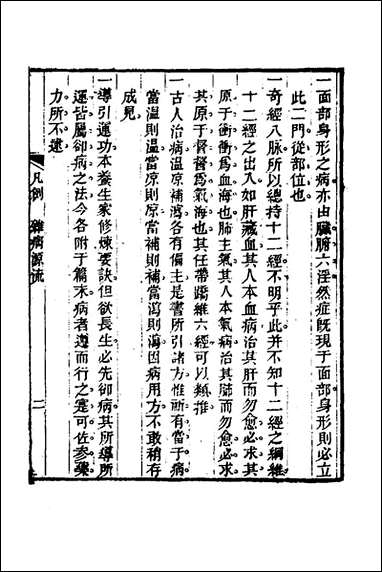 一面部身形之病亦由臟腑六淫然症既現于面部身形則必立
此二門從部位也
一奇經八脈所以總持十二經不明乎此并不知十二經之綱維
十二經之出入如肝藏血其人本血病治其肝而勿愈必求其
原于衝衝爲血海也肺主氣其人本氣病治其肺而勿愈必求
其原于督督爲氣海也其任帶蹻維六經可以類推
一古人治病温凉補瀉各有偏主是書所引諸方惟斷有當于病
當温則温當凉則凉當補則補當瀉則瀉因病用方不敢稍存
成見
一導引運功本養生家修煉要訣但欲長生必先却病其所導所
運皆屬却病之法今各附于篇末病者遵而行之是可佐參藥
力所不逮
凡例 雜病源流 二